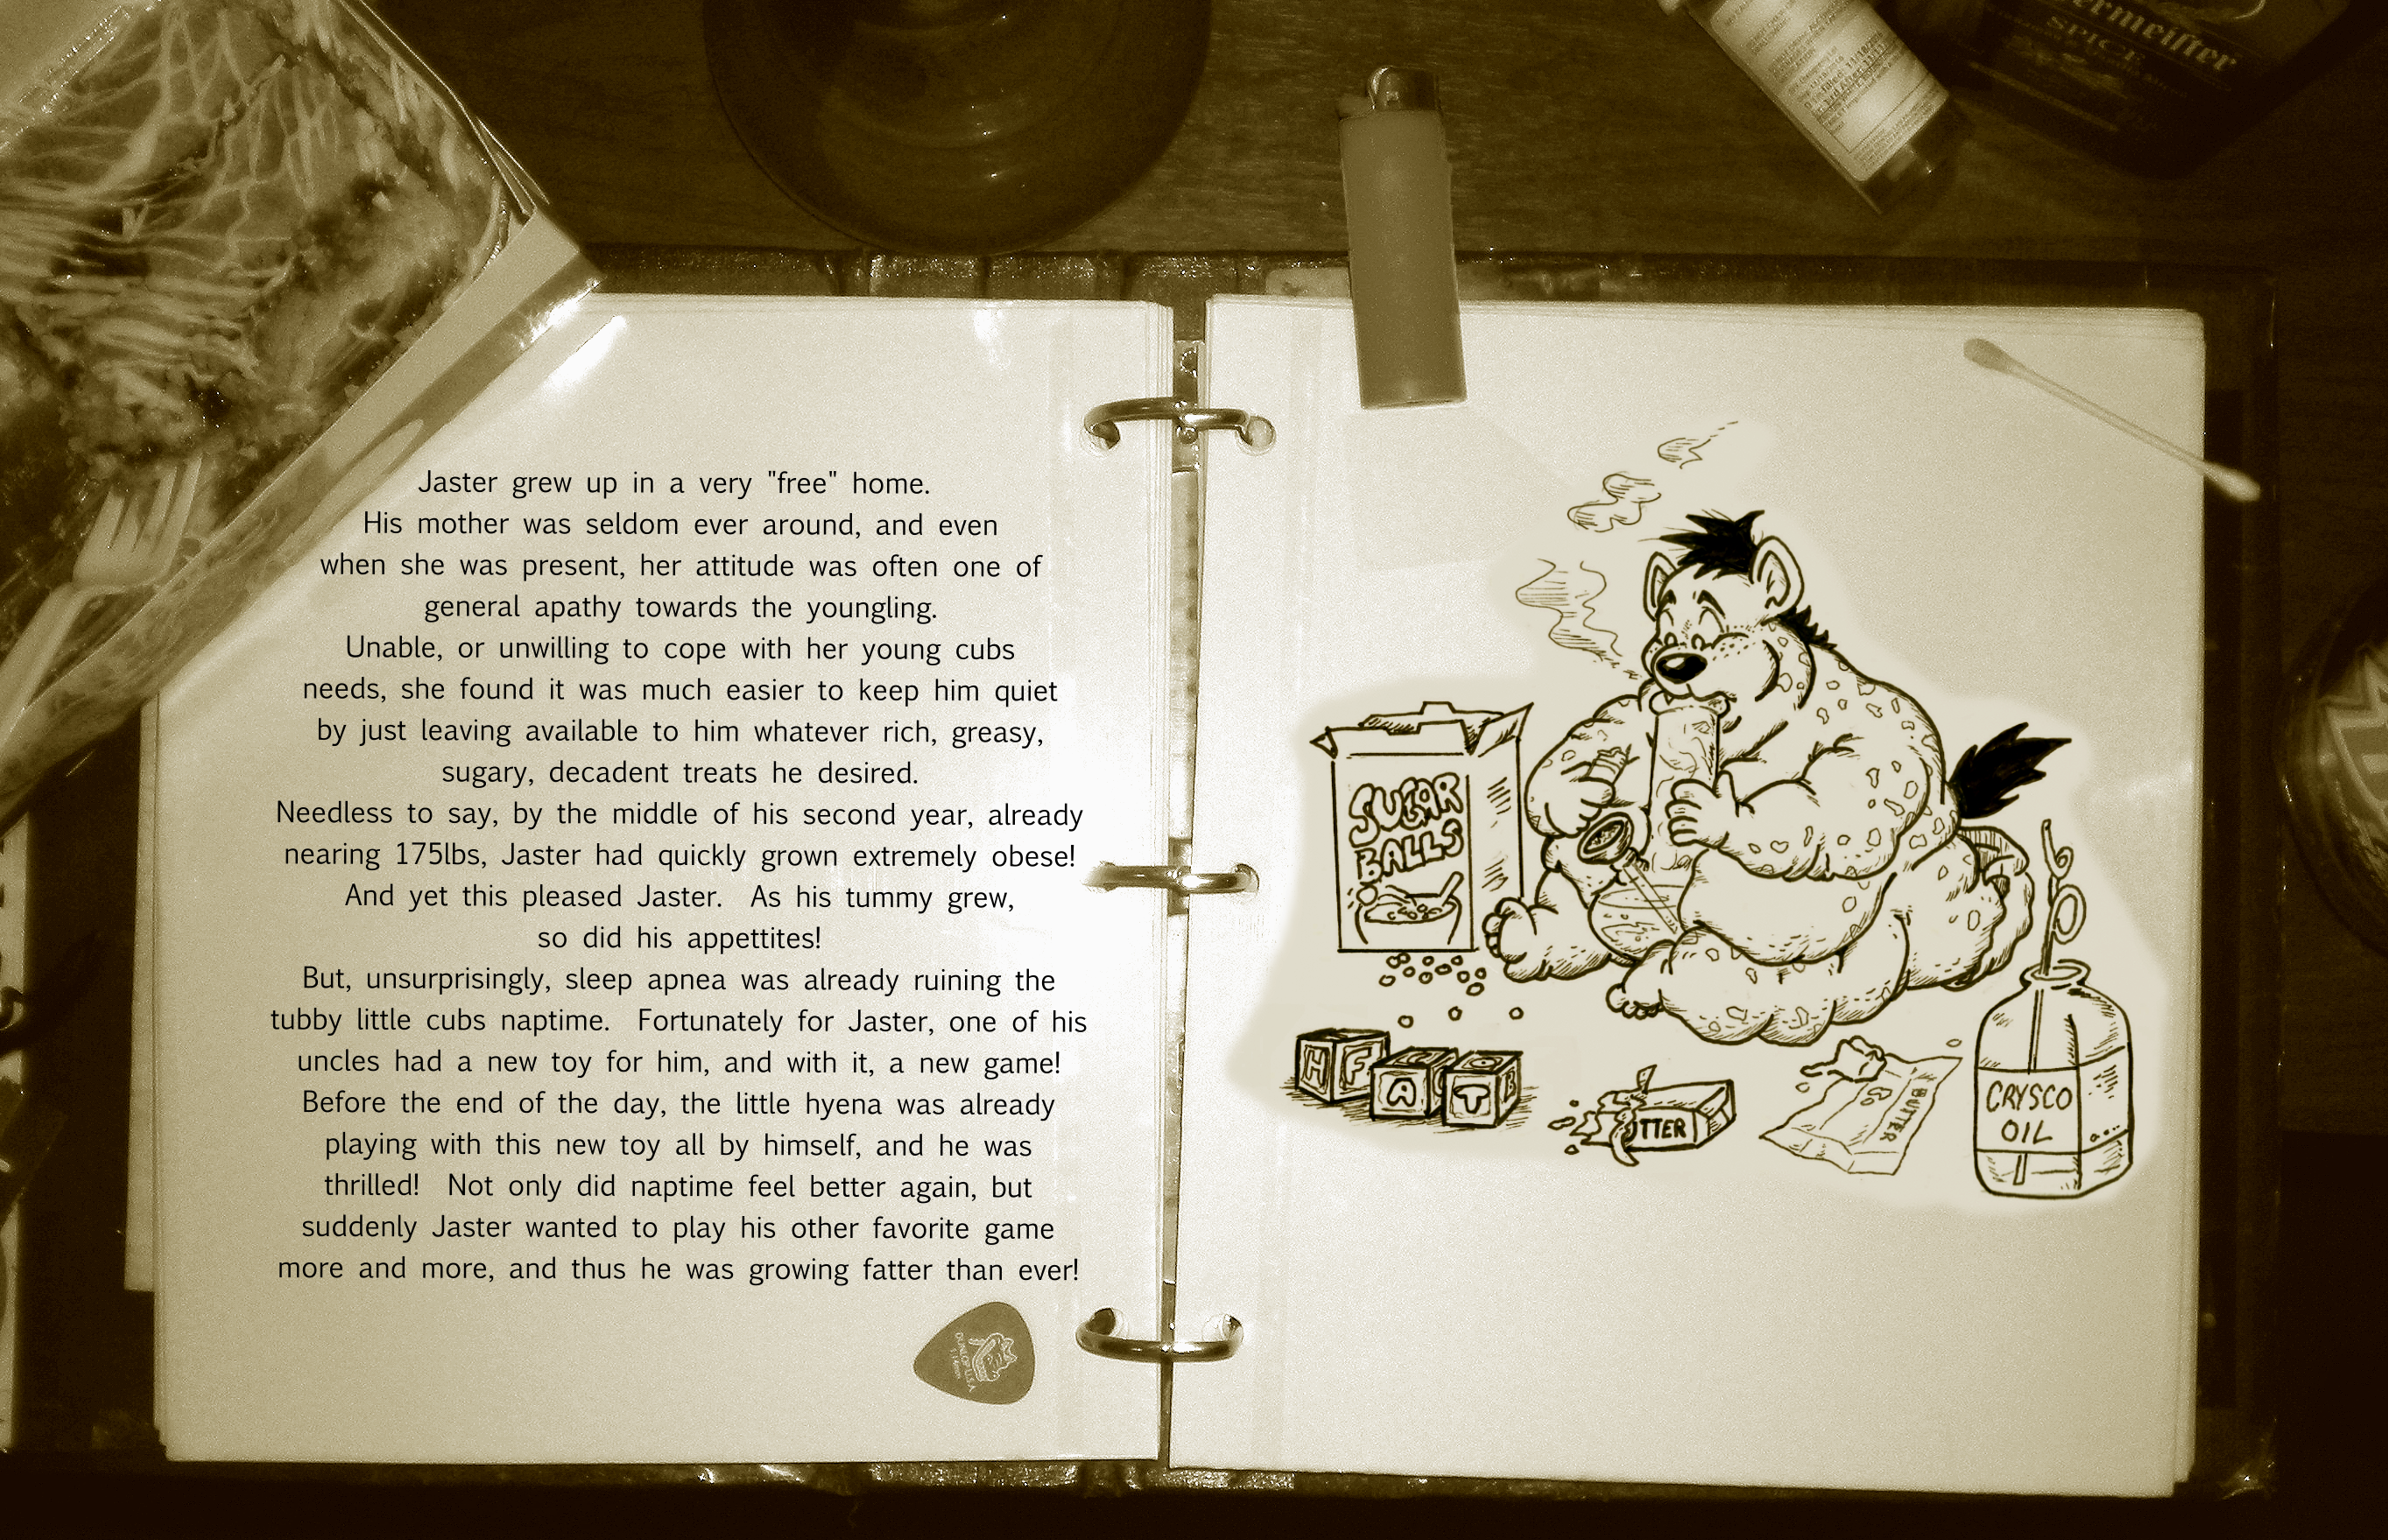 SPICE
Jaster grew up in a very "free" home.
His mother was seldom ever around, and even
when she was present, her attitude was often one of
general apathy towards the youngling.
Unable, or unwilling to cope with her young cubs
needs, she found it was much easier to keep him quiet
by just leaving available to him whatever rich, greasy,
sugary, decadent treats he desired.
Needless to say, by the middle of his second year, already
nearing 175lbs, Jaster had quickly grown extremely obese!
And yet this pleased Jaster. As his tummy grew,
so did his appettites!
But, unsurprisingly, sleep apnea was already ruining the
tubby little cubs naptime. Fortunately for Jaster, one of his
uncles had a new toy for him, and with it, a new game!
Before the end of the day, the little hyena was already
playing with this new toy all by himself, and he was
thrilled! Not only did naptime feel better again, but
suddenly Jaster wanted to play his other favorite game
more and more, and thus he was growing fatter than ever!
DUNLOP U.S.A
SUGAR
BALLS
H F
A
T
TTER
BUTTER
CRYSCO
OIL